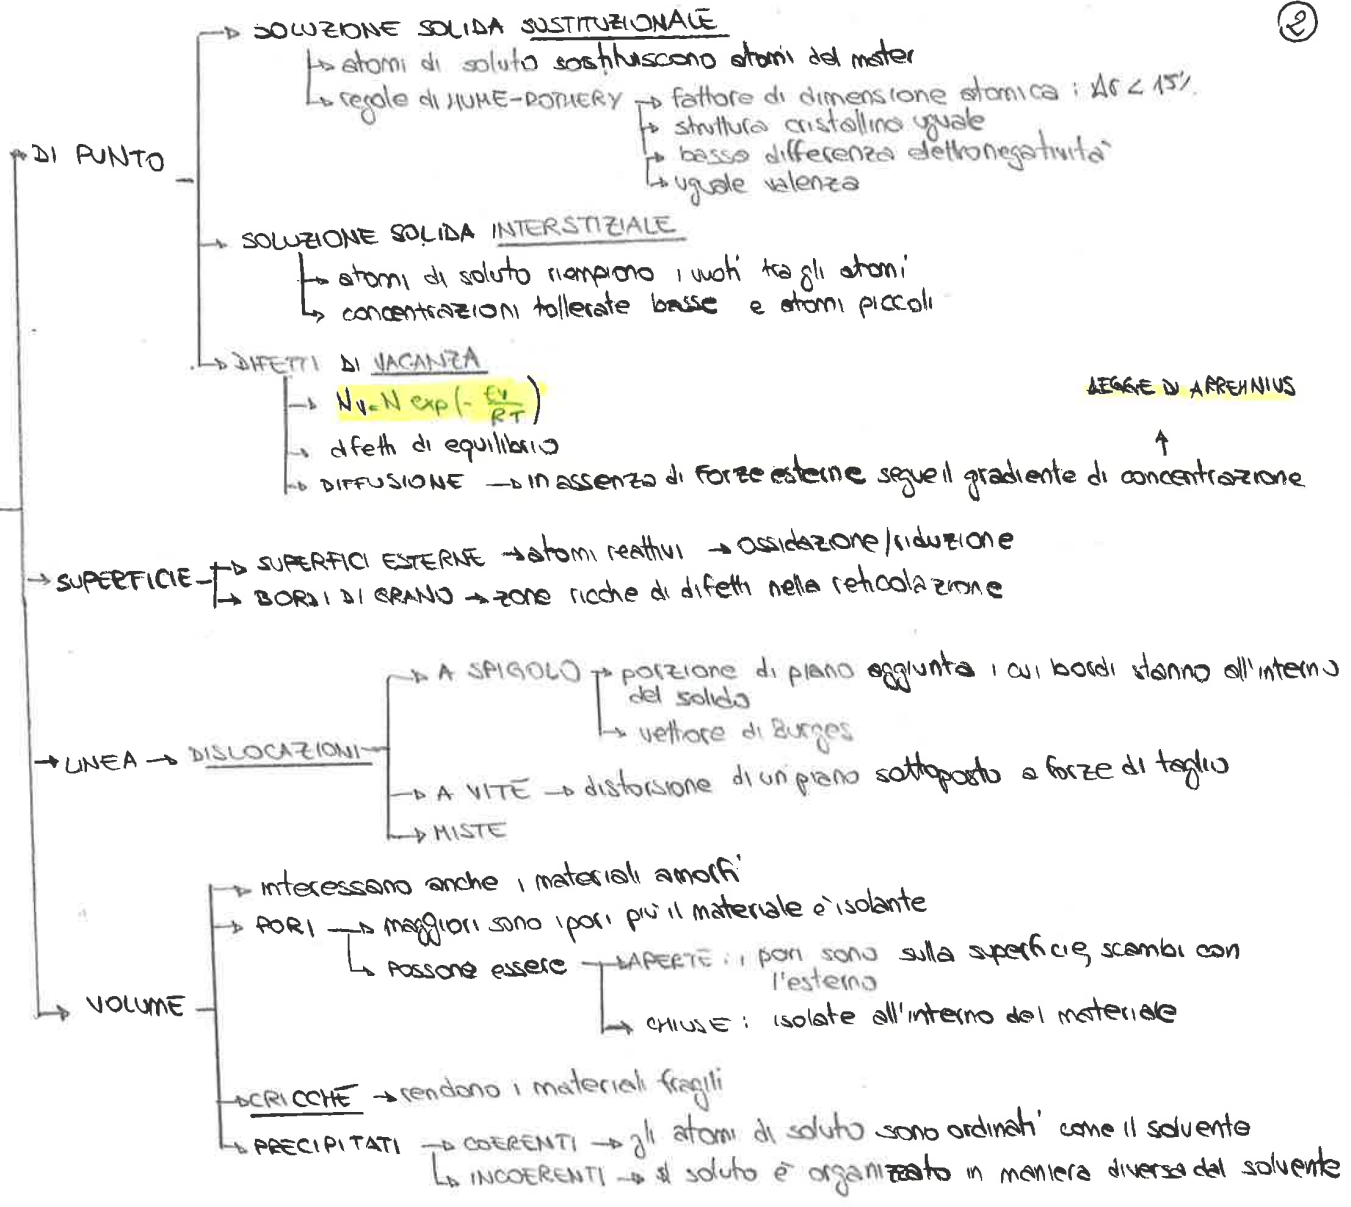 2
SOLUZIONE SOLIDA SUSTITUZIONALE
atomi di soluto sostituiscono atomi del mater
regole di HUME-ROTHERY → fattore di dimensione atomica : Δr < 15%
struttura cristallina uguale
bassa differenza elettronegatività
uguale valenza
DI PUNTO
SOLUZIONE SOLIDA INTERSTIZIALE
atomi di soluto riempiono i vuoti tra gli atomi
concentrazioni tollerate basse e atomi piccoli
DIFETTI DI VACANZA
Nv=N exp(- Ev/RT)
LEGGE DI ARREHNIUS
difetti di equilibrio
DIFFUSIONE → in assenza di forze esterne segue il gradiente di concentrazione
SUPERFICIE
SUPERFICI ESTERNE → atomi reattivi → ossidazione/riduzione
BORDI DI GRANO → zone ricche di difetti nella reticolazione
A SPIGOLO → porzione di piano aggiunta i cui bordi stanno all'interno
del solido
vettore di Burges
LINEA → DISLOCAZIONI
A VITE → distorsione di un piano sottoposto a forze di taglio
MISTE
interessano anche i materiali amorfi
PORI → maggiori sono i pori più il materiale è isolante
possono essere → APERTE : i pori sono sulla superficie, scambi con
l'esterno
VOLUME
CHIUSE : isolate all'interno del materiale
CRICCHE → rendono i materiali fragili
PRECIPITATI → COERENTI → gli atomi di soluto sono ordinati come il solvente
INCOERENTI → il soluto è organizzato in maniera diversa dal solvente